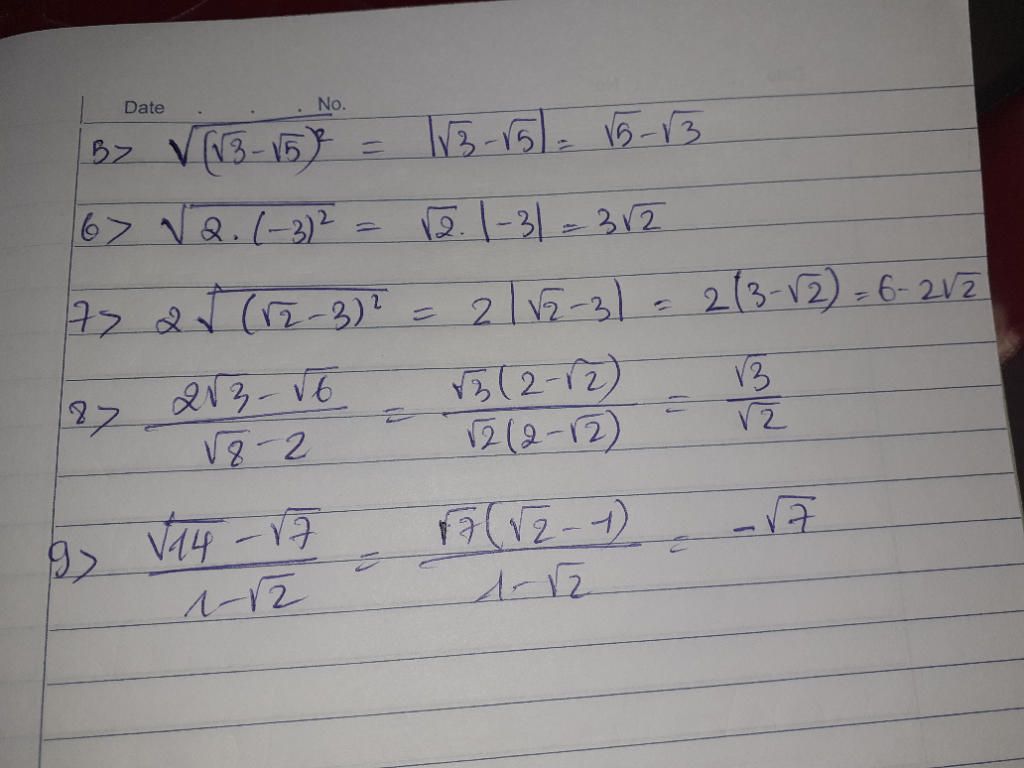 Date . . . No.
5> √(√3-√5)² = |√3-√5| = √5-√3
6> √2.(-3)² = √2.|-3| = 3√2
7> 2√(√2-3)² = 2|√2-3| = 2(3-√2) = 6-2√2
8> (2√3-√6)/(√8-2) = √3(2-√2)/√2(2-√2) = √3/√2
9> (√14-√7)/(1-√2) = √7(√2-1)/(1-√2) = -√7